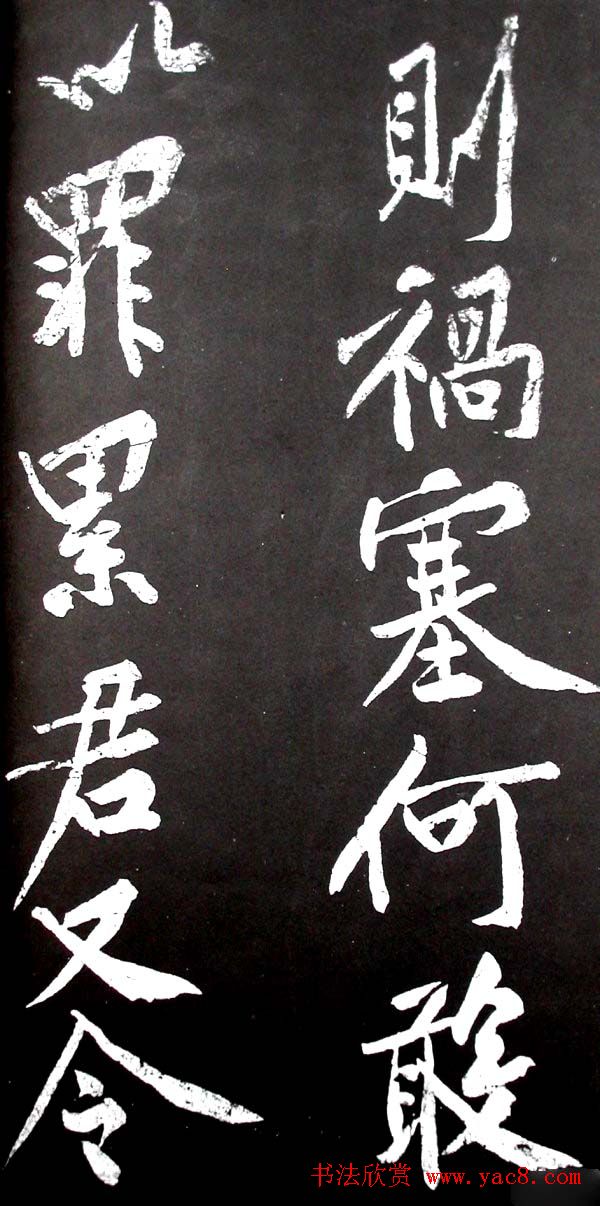 則禍塞何敢
以罪累君又令
书法欣赏 www.yac8.com